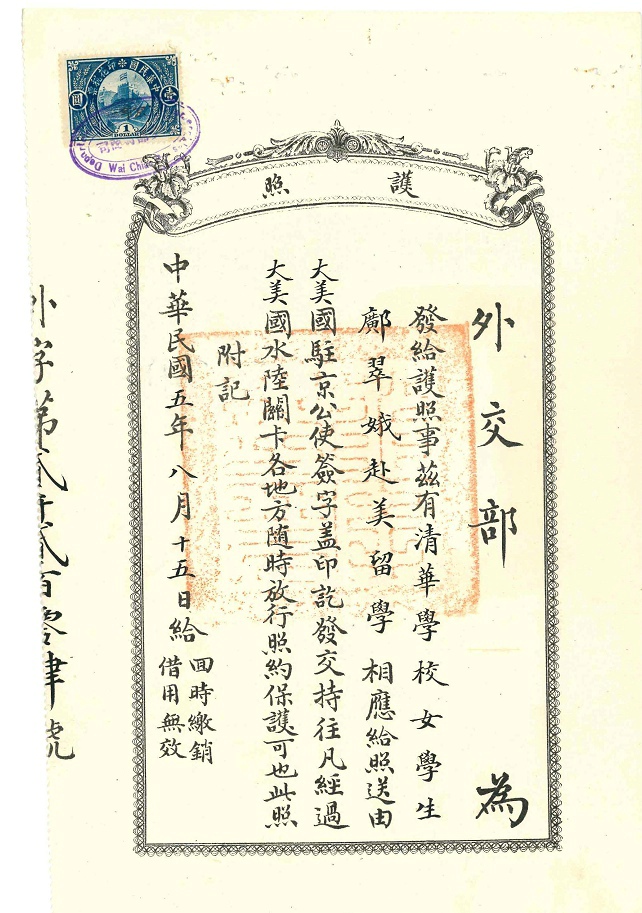 中華民國印花稅票
壹
圓
1
DOLLAR
Wai Chia
護照
外交部為
發給護照事茲有清華學校女學生
鄺翠娥赴美留學相應給照送由
大美國駐京公使簽字盖印訖發交持往凡經過
大美國水陸關卡各地方随時放行照約保護可也此照
附記
中華民國五年八月十五日給
回時繳銷
借用無效
外字第貳仟貳百零肆號